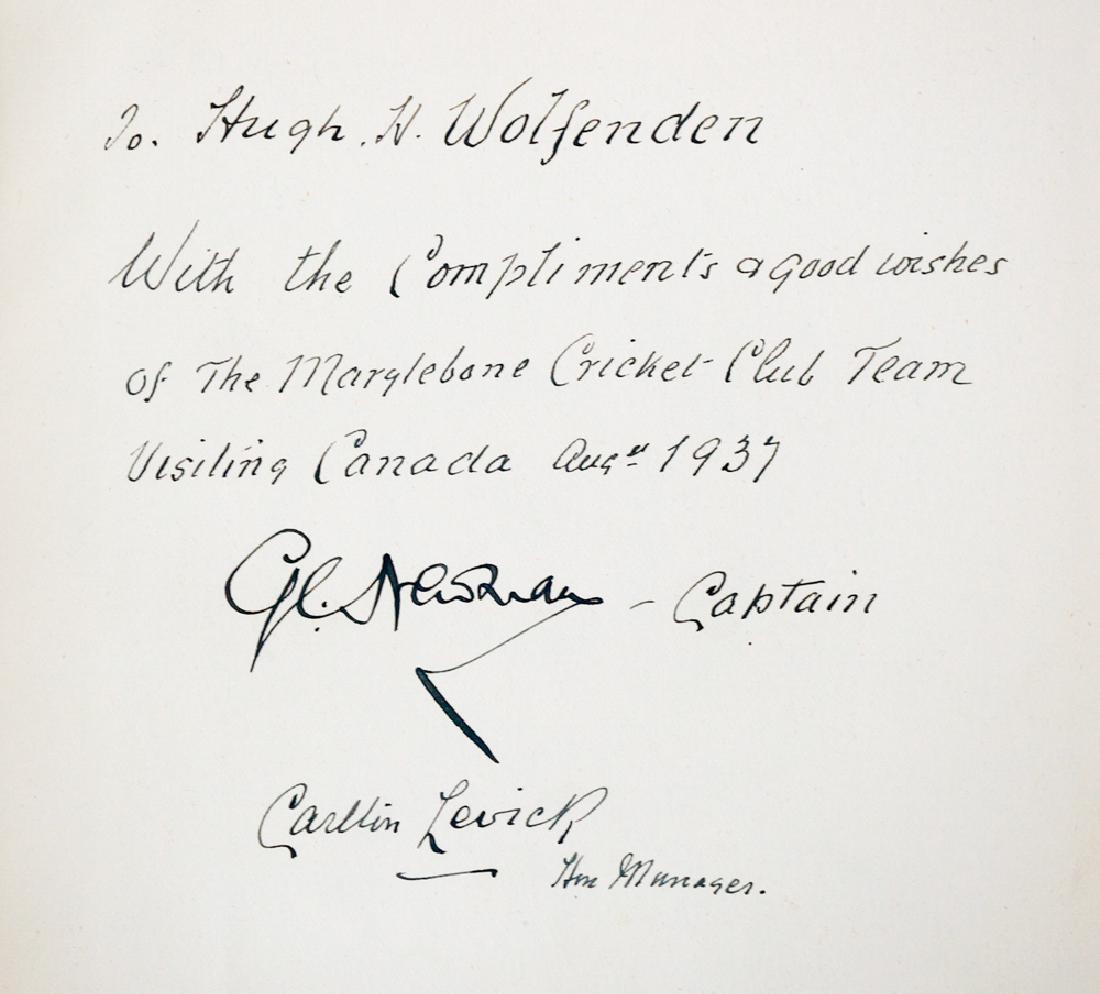 To. Hugh. H. Wolfenden
With the Compliments & good wishes
of The Marylebone Cricket Club Team
Visiting Canada Augst 1937
G.C. Newman - Captain
Carltin Levick
Hon Manager.